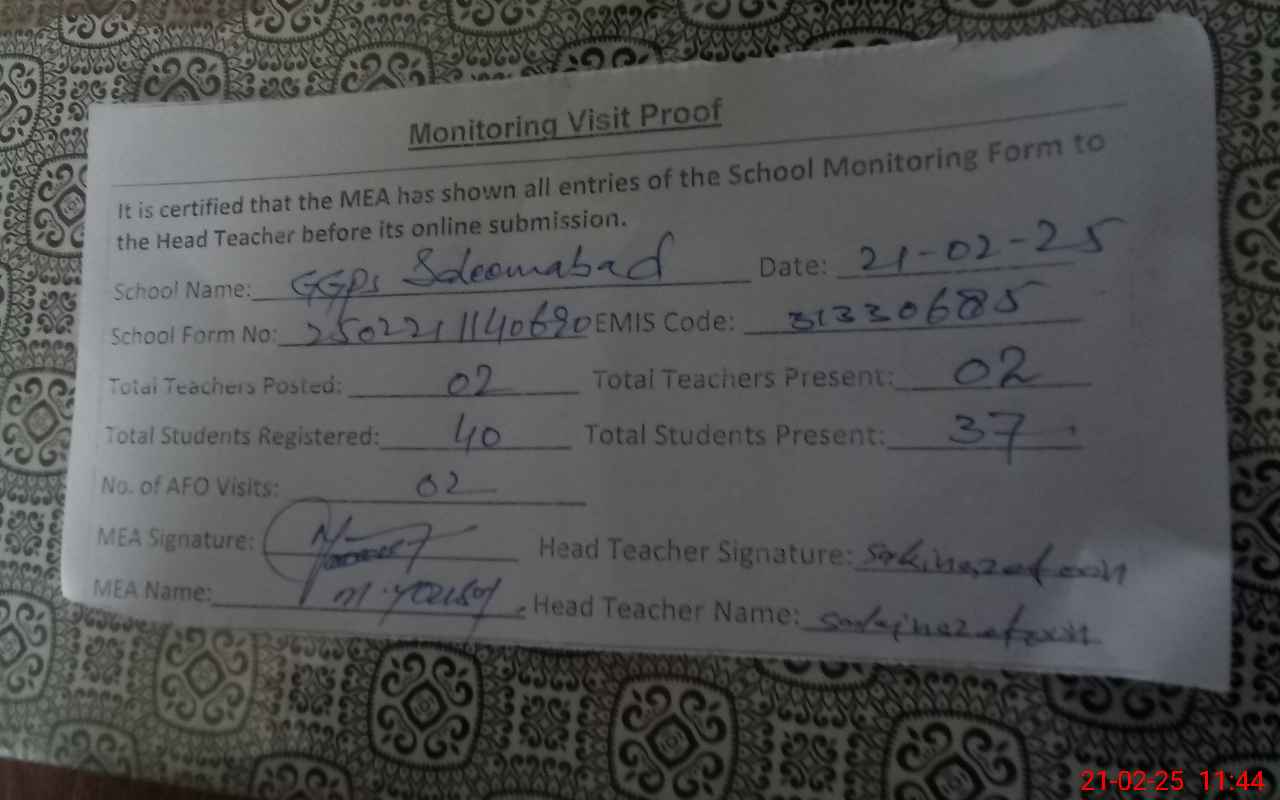 Monitoring Visit Proof
It is certified that the MEA has shown all entries of the School Monitoring Form to
the Head Teacher before its online submission.
School Name: GGPS Date: 21-02-25
School Form No: 2502211140690 EMIS Code: 31330685
Total Teachers Posted: 02 Total Teachers Present: 02
Total Students Registered: 40 Total Students Present: 37
No. of AFO Visits: 02
MEA Signature: Head Teacher Signature:
MEA Name: M. Yousaf Head Teacher Name:
21-02-25 11:44